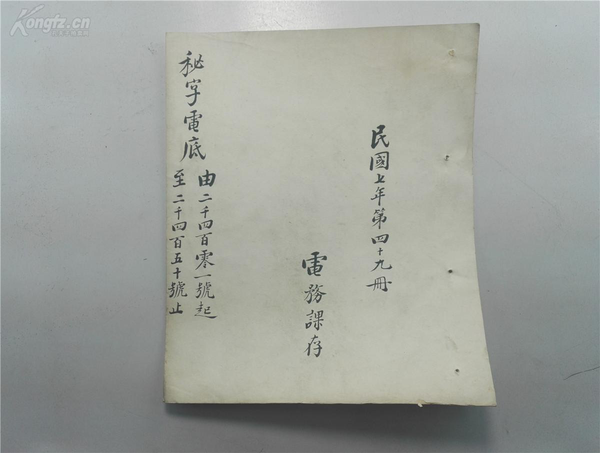 民國七年第四十九冊
電務課存
秘字電底
由二千四百零一號起
至二千四百五十號止
Kongfz.cn